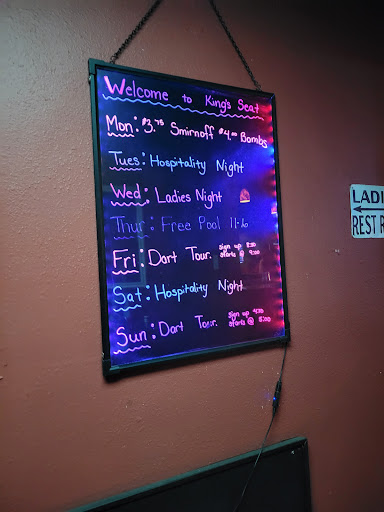 Welcome to King's Seat
Mon: $3.75 Smirnoff $4.00 Bombs
Tues: Hospitality Night
Wed: Ladies Night
Thur: Free Pool 11-6
Fri: Dart Tour. sign up 8:30
starts @ 9:00
Sat: Hospitality Night
Sun: Dart Tour. sign up 4:30
starts @ 5:00
LADI
REST R